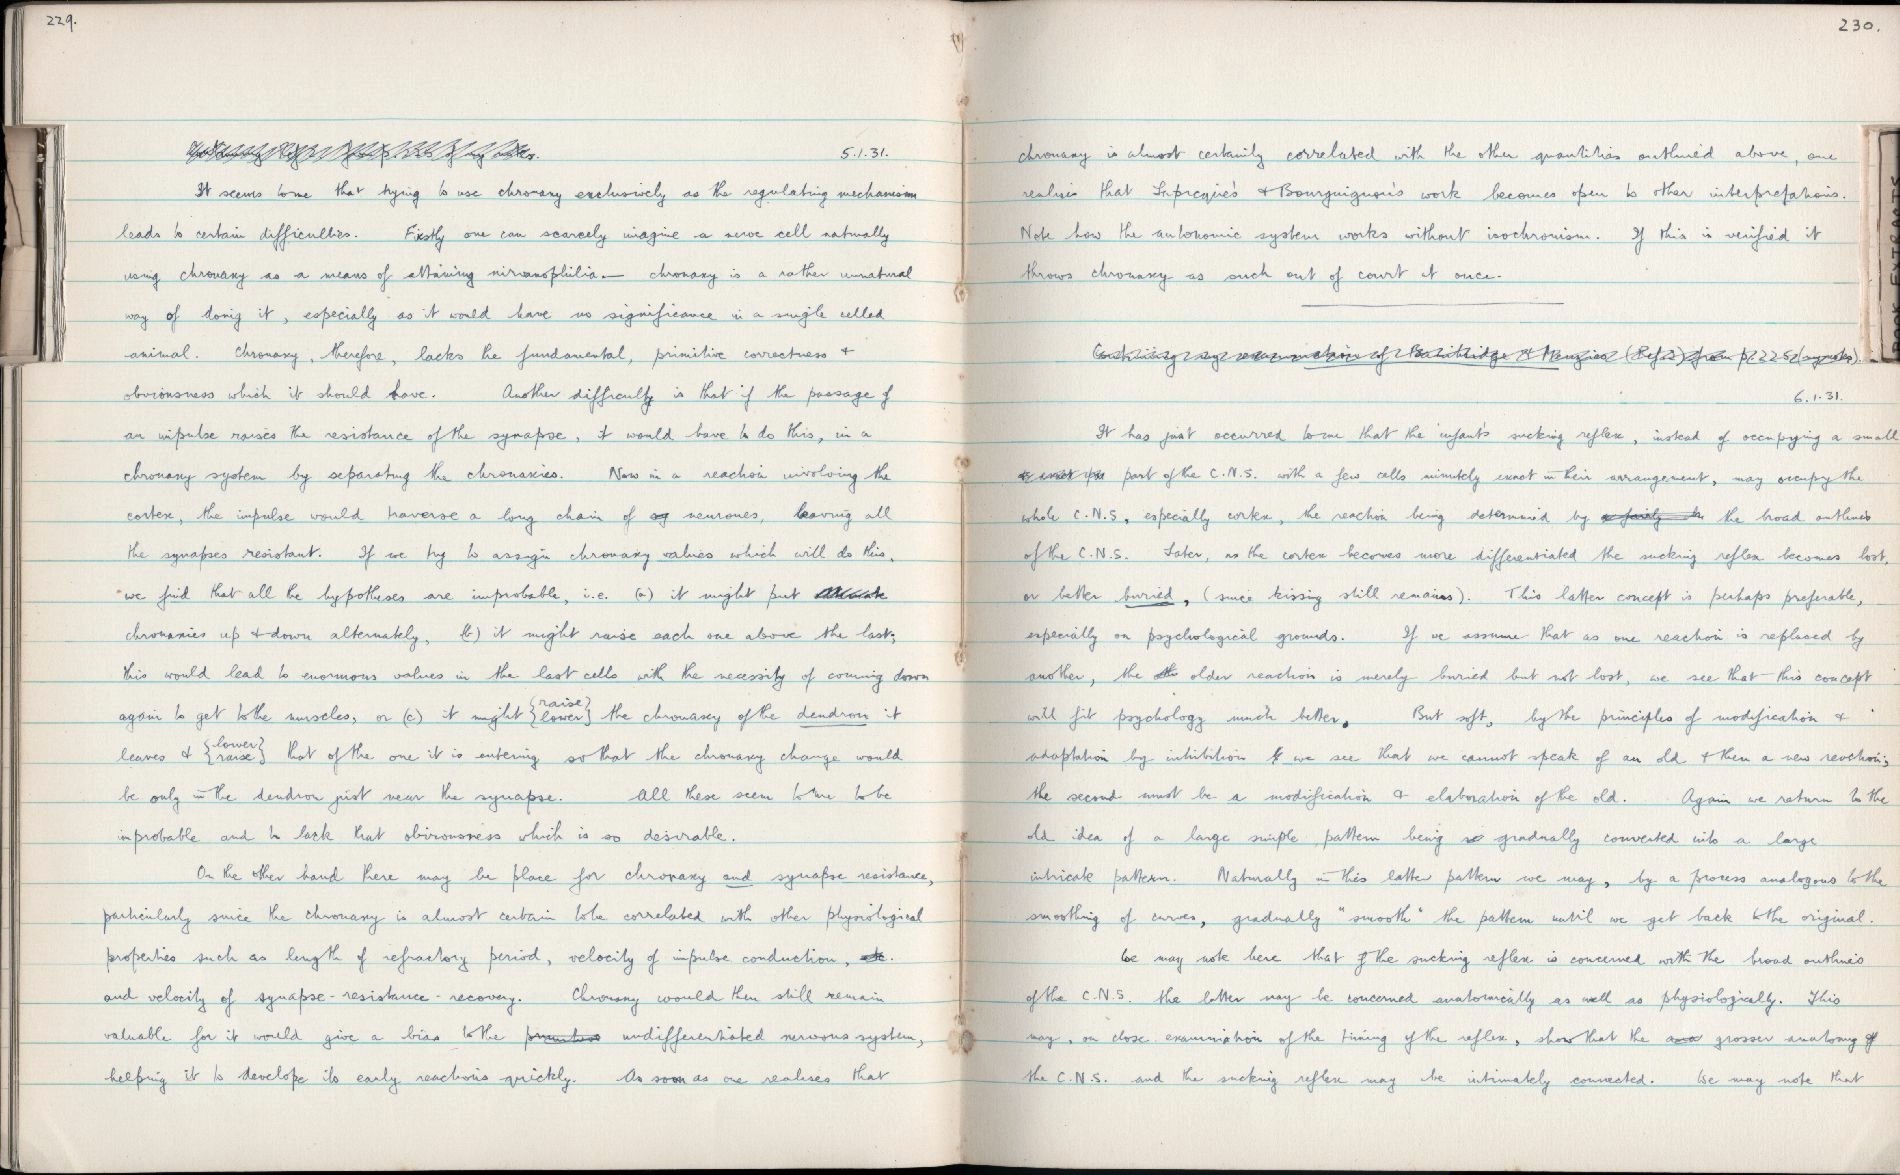 229.
5.1.31.
It seems to me that trying to use chronaxy exclusively as the regulating mechanism
leads to certain difficulties. Firstly one can scarcely imagine a nerve cell naturally
using chronaxy as a means of attaining nirvanophilia. — chronaxy is a rather unnatural
way of doing it, especially as it would have no significance in a single celled
animal. Chronaxy, therefore, lacks the fundamental, primitive correctness +
obviousness which it should have. Another difficulty is that if the passage of
an impulse raises the resistance of the synapse, it would have to do this, in a
chronaxy system by separating the chronaxies. Now in a reaction involving the
cortex, the impulse would traverse a long chain of neurones, leaving all
the synapses resistant. If we try to assign chronaxy values which will do this,
we find that all the hypotheses are improbable, i.e. (a) it might put
chronaxies up + down alternately, (b) it might raise each one above the last;
this would lead to enormous values in the last cells with the necessity of coming down
again to get to the muscles, or (c) it might {raise lower} the chronaxy of the dendron it
leaves + {lower raise} that of the one it is entering so that the chronaxy change would
be only in the dendron just near the synapse. All these seem to me to be
improbable and to lack that obviousness which is so desirable.
On the other hand there may be place for chronaxy and synapse resistance,
particularly since the chronaxy is almost certain to be correlated with other physiological
properties such as length of refractory period, velocity of impulse conduction, etc.
and velocity of synapse-resistance-recovery. Chronaxy would then still remain
valuable for it would give a bias to the primitive undifferentiated nervous system,
helping it to develope its early reactions quickly. As soon as one realises that
230.
chronaxy is almost certainly correlated with the other quantities outlined above, one
realises that Lapicque's + Bourguignon's work becomes open to other interpretations.
Note how the autonomic system works without isochronism. If this is verified it
throws chronaxy as such out of court at once.
Continuing my examination of Bainbridge & Menzies (Ref.) from p. 225 (my notes).
6.1.31.
It has just occurred to me that the infant's sucking reflex, instead of occupying a small
part of the C.N.S. with a few cells minutely exact in their arrangement, may occupy the
whole C.N.S., especially cortex, the reaction being determined by a fairly the broad outlines
of the C.N.S. Later, as the cortex becomes more differentiated the sucking reflex becomes lost,
or better buried, (since kissing still remains). This latter concept is perhaps preferable,
especially on psychological grounds. If we assume that as one reaction is replaced by
another, the older reaction is merely buried but not lost, we see that this concept
will fit psychology much better. But soft, by the principles of modification +
adaptation by inhibition we see that we cannot speak of an old + then a new reaction;
the second must be a modification & elaboration of the old. Again we return to the
old idea of a large simple pattern being so gradually converted into a large
intricate pattern. Naturally in this latter pattern we may, by a process analogous to the
smoothing of curves, gradually "smooth" the pattern until we get back to the original.
We may note here that if the sucking reflex is concerned with the broad outlines
of the C.N.S. the latter may be concerned anatomically as well as physiologically. This
may, on close examination of the timing of the reflex, show that the grosser anatomy of
the C.N.S. and the sucking reflex may be intimately connected. We may note that